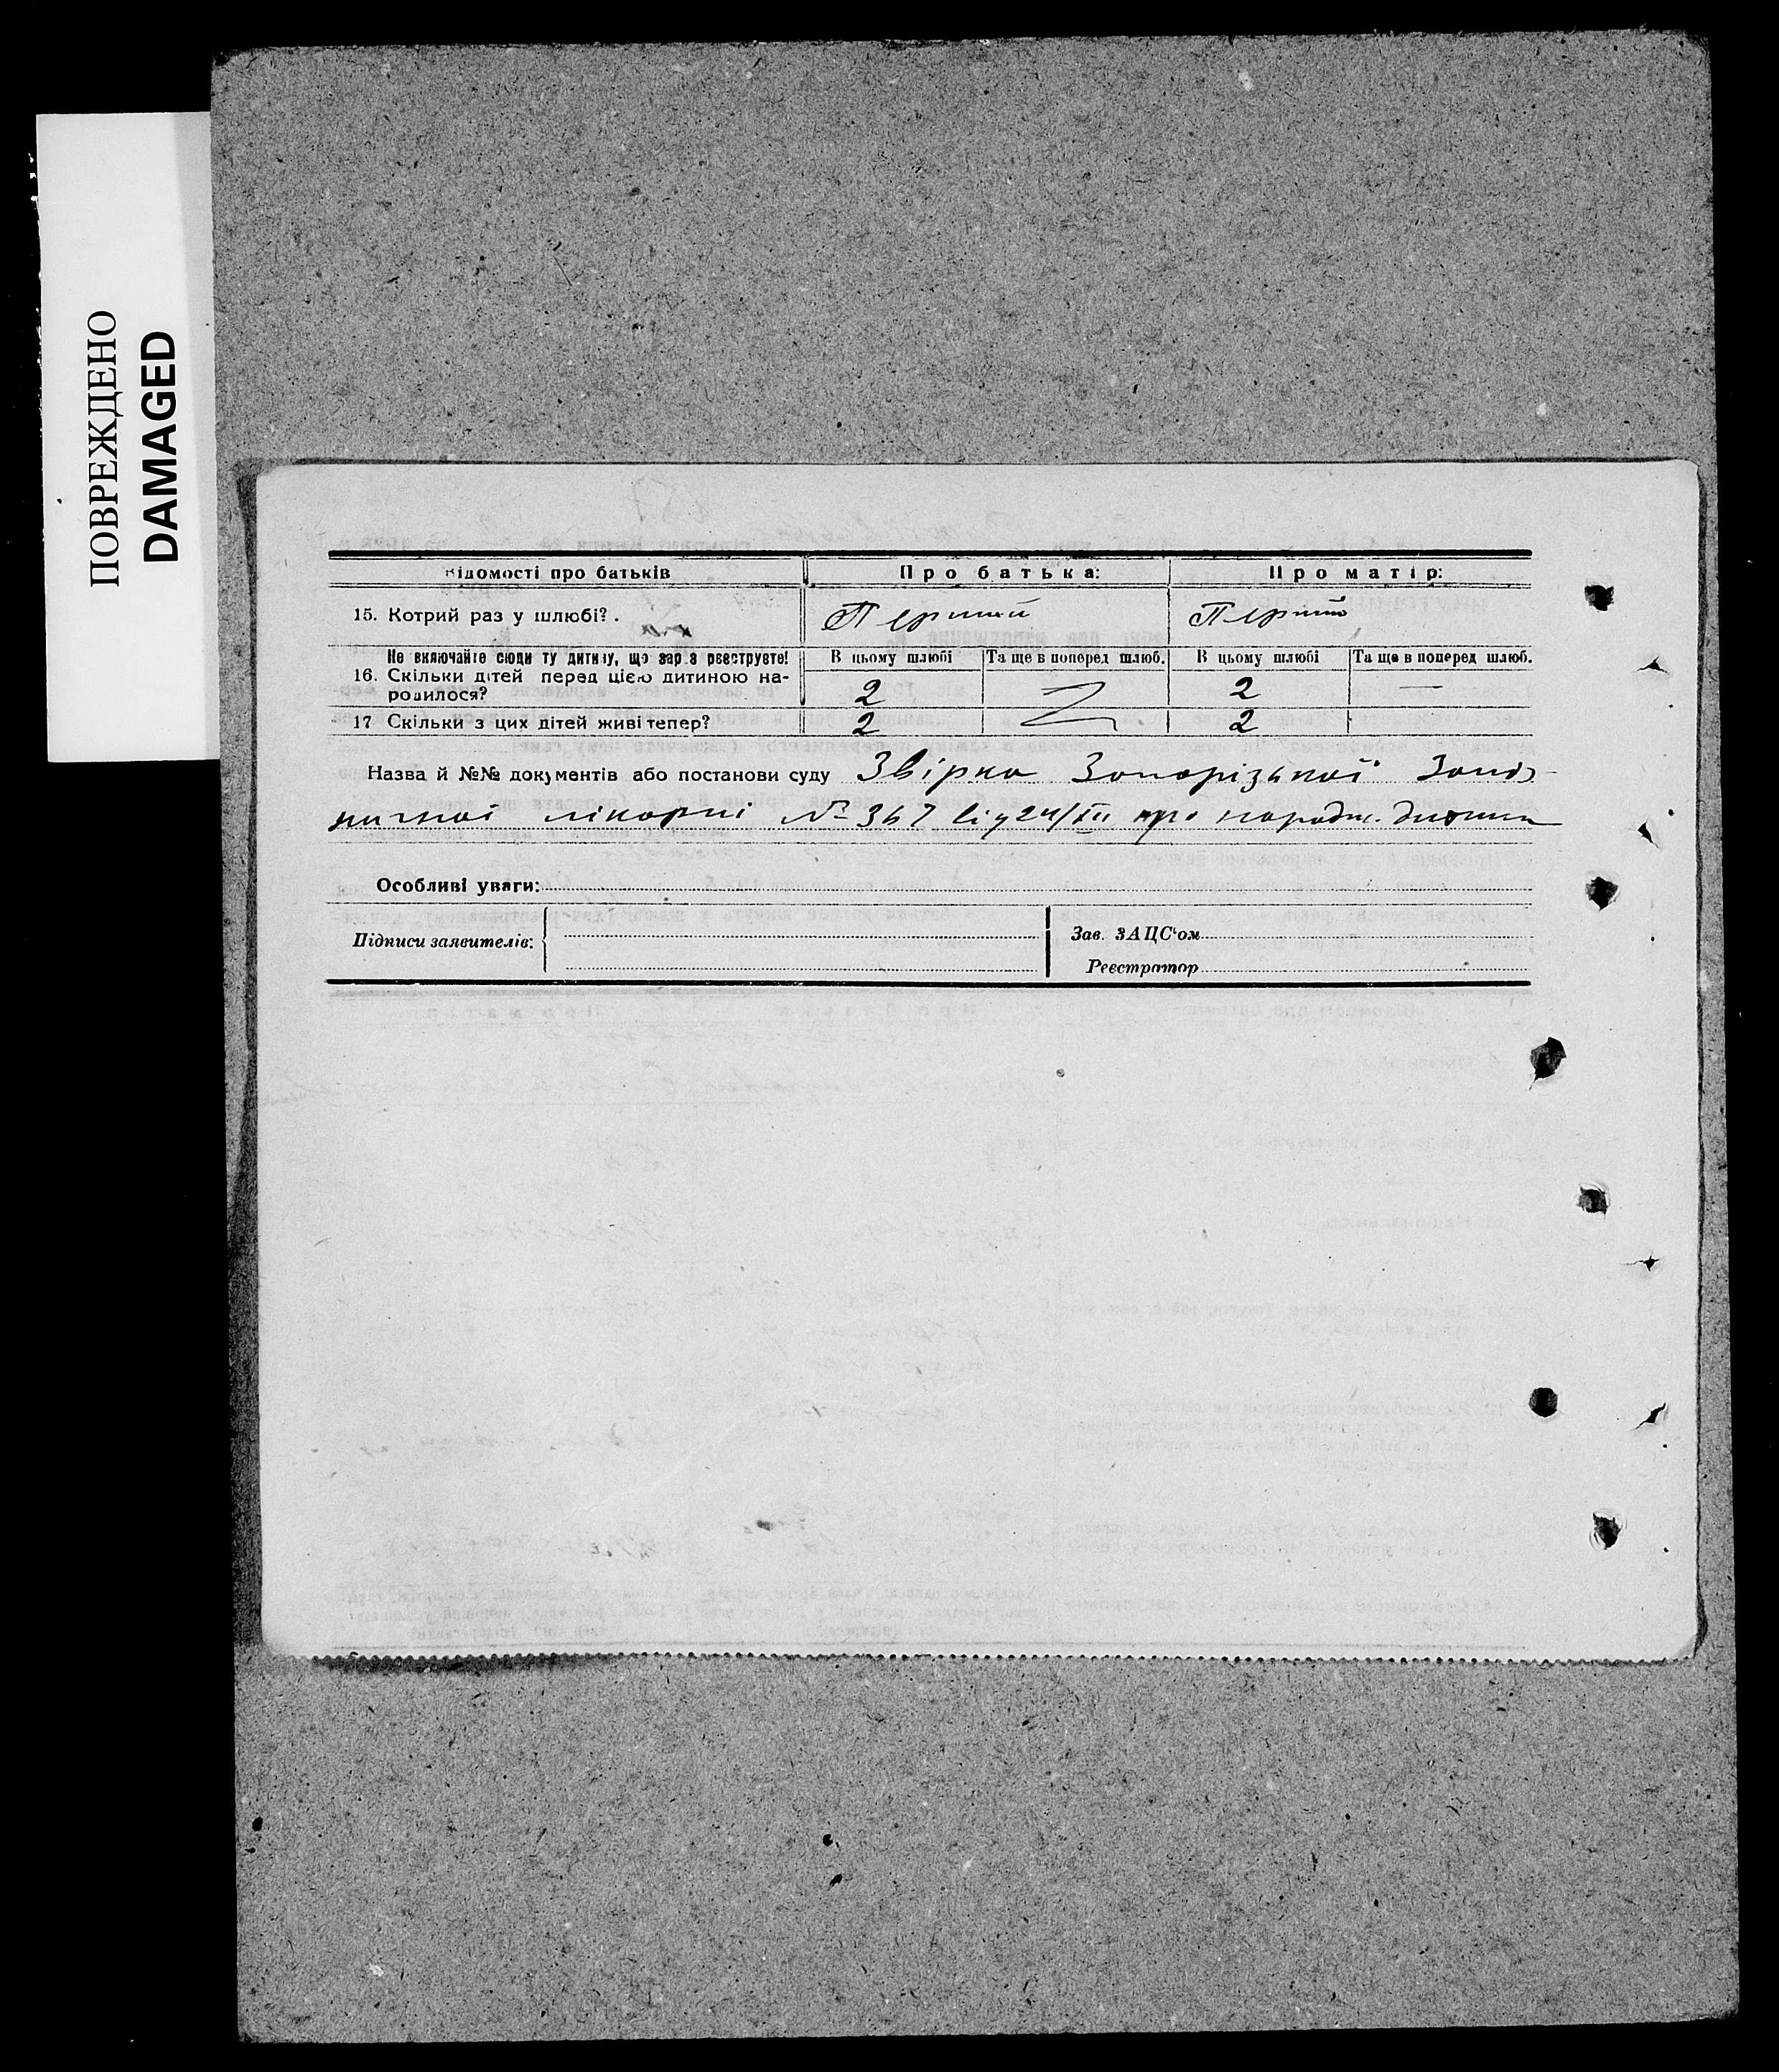 ПОВРЕЖДЕНО
DAMAGED
Відомості про батьків
Про батька:
Про матір:
15. Котрий раз у шлюбі?.
Перший
Перший
Не включайте сюди ту дитину, що зараз реєструєте!
В цьому шлюбі
Та ще в поперед шлюб.
В цьому шлюбі
Та ще в поперед шлюб.
16. Скільки дітей перед цією дитиною на-
родилося?
2
2
—
17 Скільки з цих дітей живі тепер?
2
2
Назва й №№ документів або постанови суду Звірка Запорізької Заліз-
ничної лікарні № 367 від 24/XII про народж. дитини
Особливі уваги:
Підписи заявителів:
Зав. ЗАЦС'ом
Реєстратор